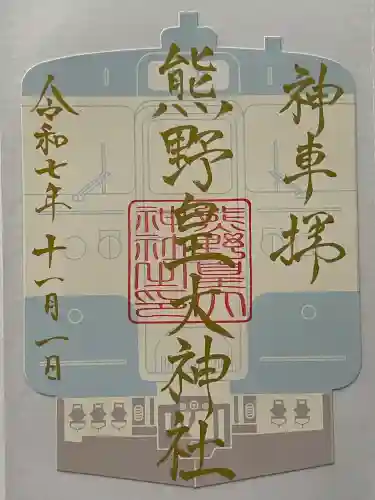 神車揮
熊野皇大神社
令和七年 十一月一日
熊野皇大神社之印